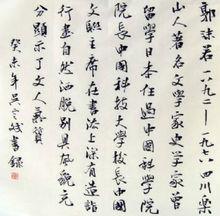 郭沫若一八九二—一九七八四川乐
山人著名文学家史学家曾
留学日本任过中国科学院
院长中国科技大学校长中国
文联主席在书法上深有造诣
行画自然洒脱别具风貌充
分显示了文人气质
癸未年吴言威书录